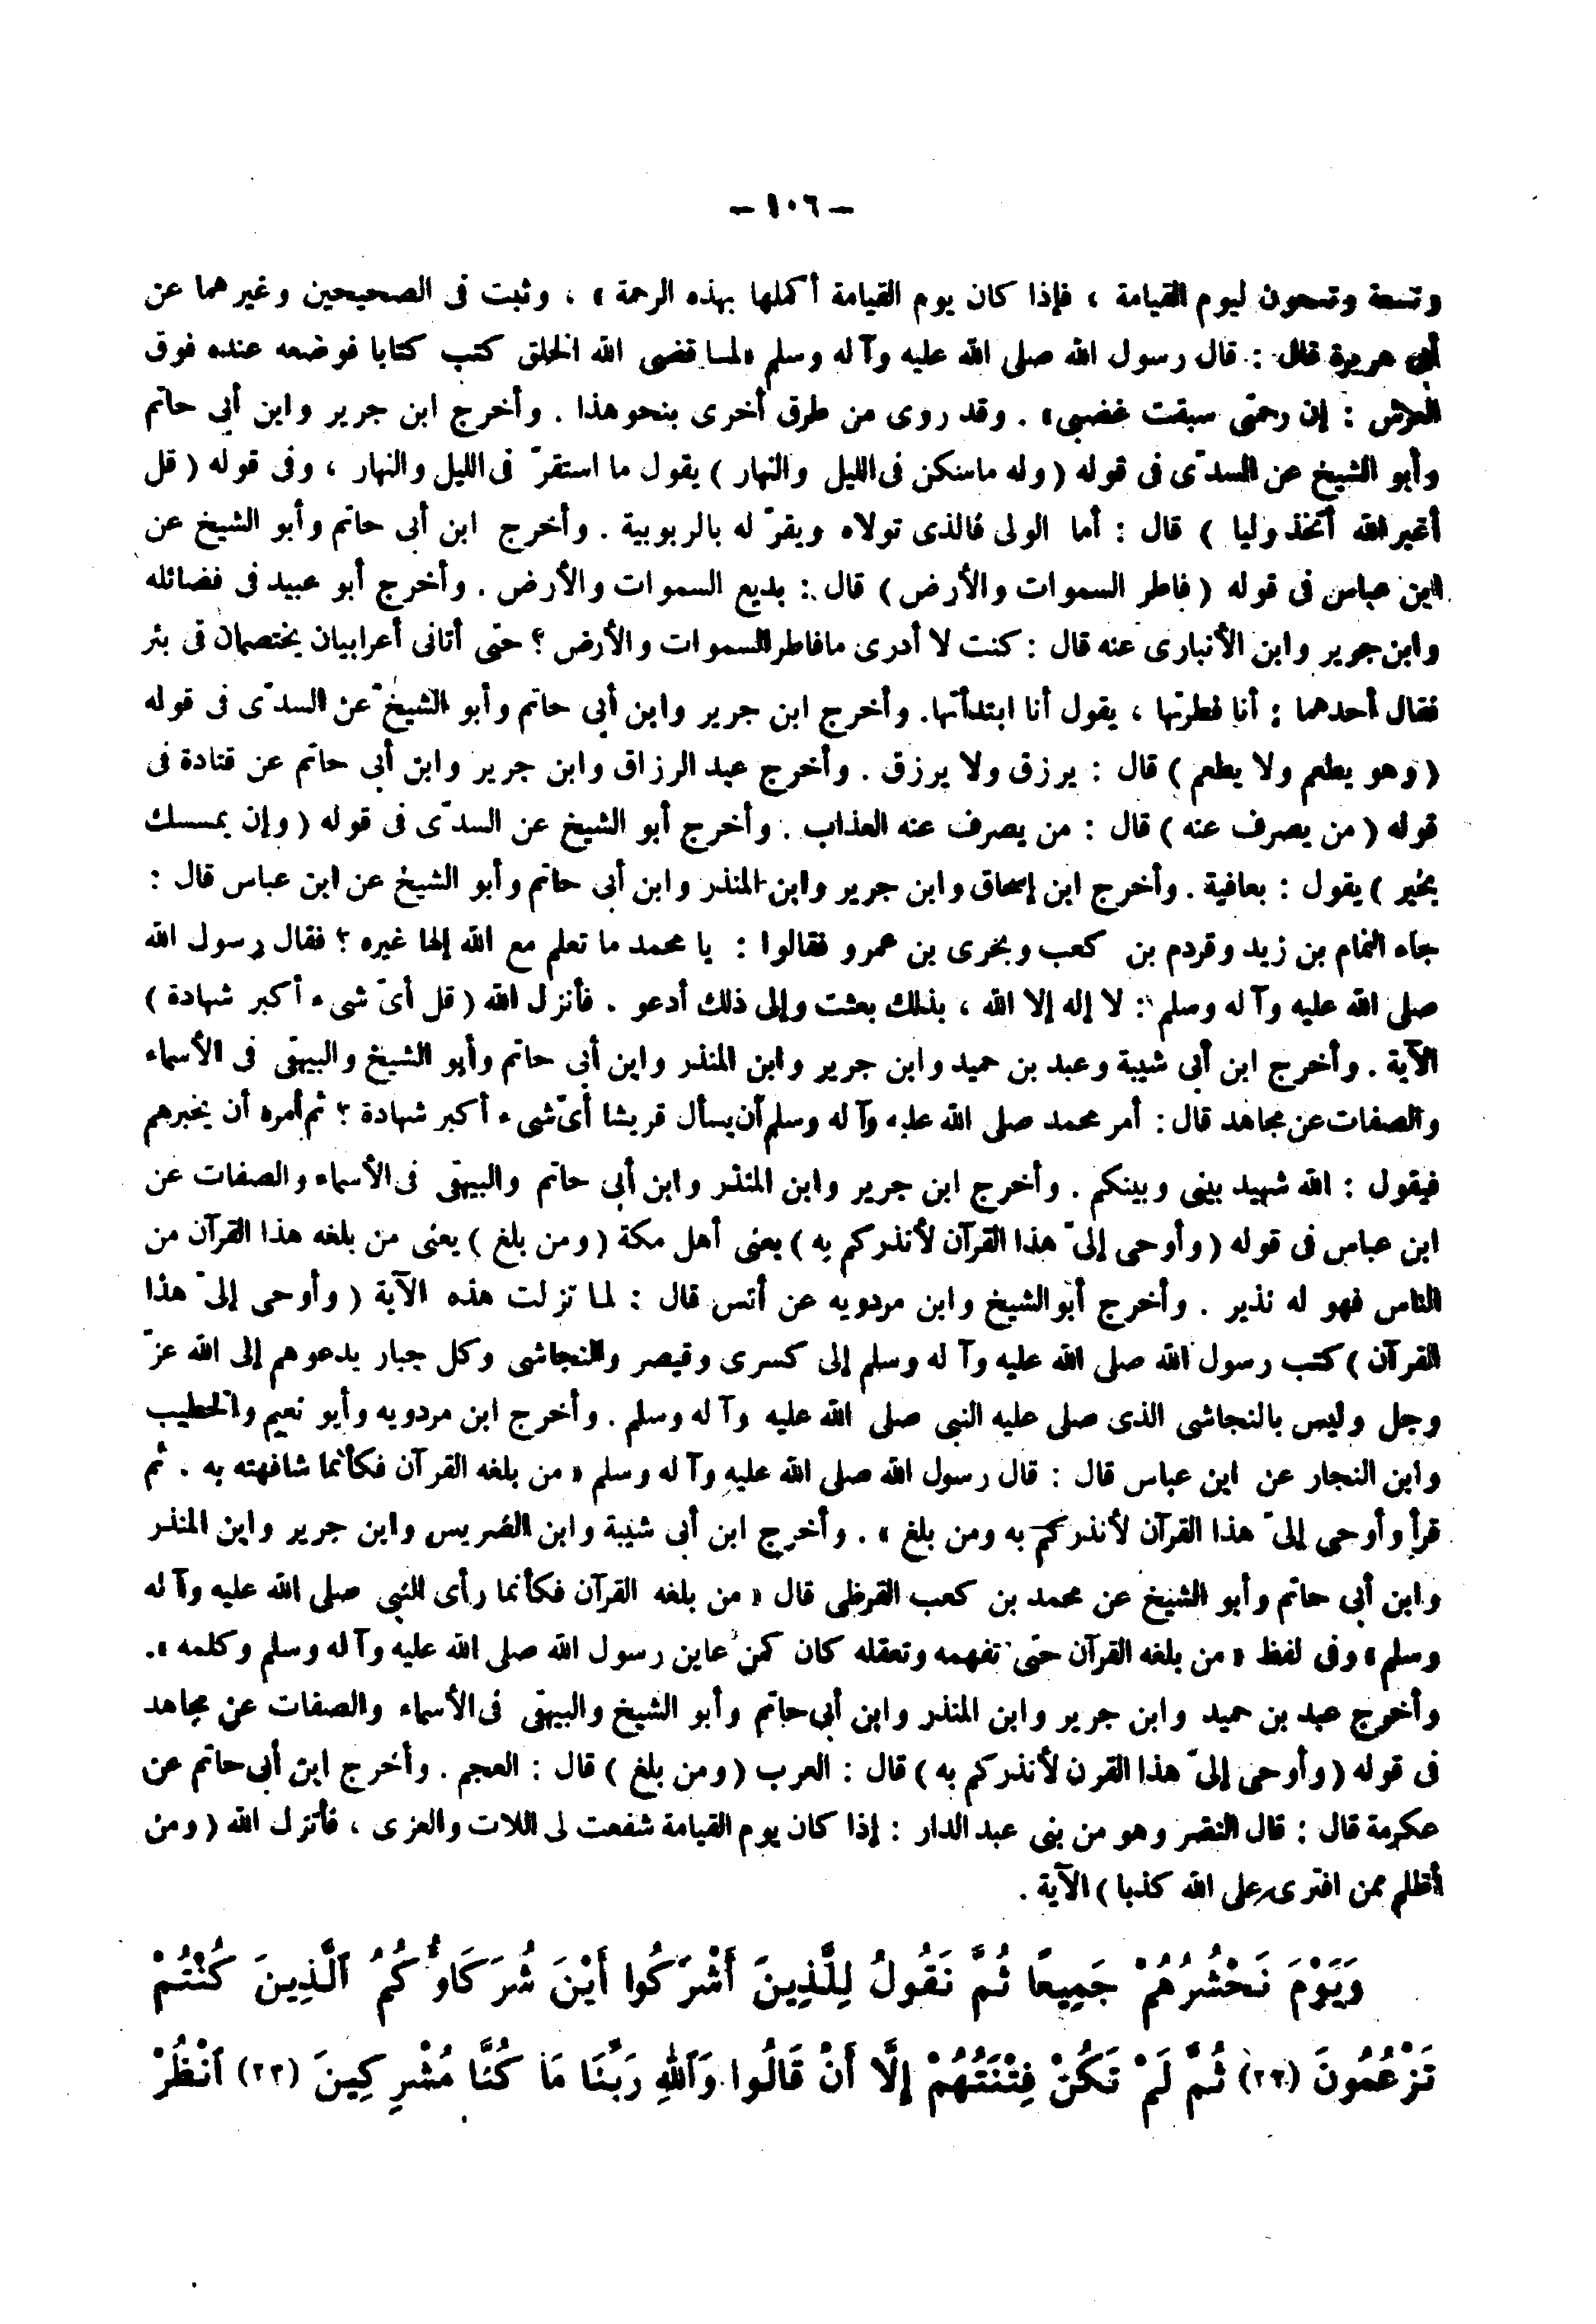 – ١٠٦ –
وتسعة وتسعون ليوم القيامة ، فإذا كان يوم القيامة أكملها بهذه الرحمة » ، وثبت فى الصحيحين وغيرهما عن
أبى هريرة قال : قال رسول الله صلى الله عليه وآله وسلم «لما قضى الله الخلق كتب كتابا فوضعه عنده فوق
العرش : إن رحمتى سبقت غضبى» . وقد روى من طرق أخرى بنحو هذا . وأخرج ابن جرير وابن أبى حاتم
وأبو الشيخ عن السدّى فى قوله ( وله ماسكن فى الليل والنهار ) يقول ما استقرّ فى الليل والنهار ، وفى قوله ( قل
أغير الله أتخذ وليا ) قال : أما الولى فالذى تولاه ويقرّ له بالربوبية . وأخرج ابن أبى حاتم وأبو الشيخ عن
ابن عباس فى قوله ( فاطر السموات والأرض ) قال : بديع السموات والأرض . وأخرج أبو عبيد فى فضائله
وابن جرير وابن الأنبارى عنه قال : كنت لا أدرى مافاطر السموات والأرض ؟ حتى أتانى أعرابيان يختصمان فى بئر
فقال أحدهما : أنا فطرتها ، يقول أنا ابتدأتها. وأخرج ابن جرير وابن أبى حاتم وأبو الشيخ عن السدّى فى قوله
( وهو يطعم ولا يطعم ) قال : يرزق ولا يرزق . وأخرج عبد الرزاق وابن جرير وابن أبى حاتم عن قتادة فى
قوله ( من يصرف عنه ) قال : من يصرف عنه العذاب . وأخرج أبو الشيخ عن السدّى فى قوله ( وإن يمسسك
بخير ) يقول : بعافية . وأخرج ابن إسحاق وابن جرير وابن المنذر وابن أبى حاتم وأبو الشيخ عن ابن عباس قال :
جاء النمام بن زيد وقردم بن كعب وبحرى بن عمرو فقالوا : يا محمد ما تعلم مع الله إلها غيره ؟ فقال رسول الله
صلى الله عليه وآله وسلم : لا إله إلا الله ، بذلك بعثت وإلى ذلك أدعو . فأنزل الله ( قل أىّ شىء أكبر شهادة )
الآية . وأخرج ابن أبى شيبة وعبد بن حميد وابن جرير وابن المنذر وابن أبى حاتم وأبو الشيخ والبيهقى فى الأسماء
والصفات عن مجاهد قال : أمر محمد صلى الله عليه وآله وسلم أن يسأل قريشا أىّ شىء أكبر شهادة ؟ ثم أمره أن يخبرهم
فيقول : الله شهيد بينى وبينكم . وأخرج ابن جرير وابن المنذر وابن أبى حاتم والبيهقى فى الأسماء والصفات عن
ابن عباس فى قوله ( وأوحى إلىّ هذا القرآن لأنذركم به ) يعنى أهل مكة ( ومن بلغ ) يعنى من بلغه هذا القرآن من
الناس فهو له نذير . وأخرج أبو الشيخ وابن مردويه عن أنس قال : لما نزلت هذه الآية ( وأوحى إلىّ هذا
القرآن ) كتب رسول الله صلى الله عليه وآله وسلم إلى كسرى وقيصر والنجاشى وكل جبار يدعوهم إلى الله عزّ
وجل وليس بالنجاشى الذى صلى عليه النبى صلى الله عليه وآله وسلم . وأخرج ابن مردويه وأبو نعيم والخطيب
وابن النجار عن ابن عباس قال : قال رسول الله صلى الله عليه وآله وسلم « من بلغه القرآن فكأنما شافهته به . ثم
قرأ وأوحى إلىّ هذا القرآن لأنذركم به ومن بلغ » . وأخرج ابن أبى شيبة وابن الضريس وابن جرير وابن المنذر
وابن أبى حاتم وأبو الشيخ عن محمد بن كعب القرظى قال « من بلغه القرآن فكأنما رأى النبى صلى الله عليه وآله
وسلم» وفى لفظ « من بلغه القرآن حتى تفهمه وتعقله كان كمن عاين رسول الله صلى الله عليه وآله وسلم وكلمه ».
وأخرج عبد بن حميد وابن جرير وابن المنذر وابن أبى حاتم وأبو الشيخ والبيهقى فى الأسماء والصفات عن مجاهد
فى قوله ( وأوحى إلىّ هذا القرن لأنذركم به ) قال : العرب ( ومن بلغ ) قال : العجم . وأخرج ابن أبى حاتم عن
عكرمة قال : قال النضر وهو من بنى عبد الدار : إذا كان يوم القيامة شفعت لى اللات والعزى ، فأنزل الله ( ومن
أظلم ممن افترى على الله كذبا ) الآية .
وَيَوْمَ نَحْشُرُهُمْ جَمِيعًا ثُمَّ نَقُولُ لِلَّذِينَ أَشْرَكُوا أَيْنَ شُرَكَاؤُكُمُ ٱلَّذِينَ كُنْتُمْ
تَزْعُمُونَ (٢٢) ثُمَّ لَمْ تَكُنْ فِتْنَتُهُمْ إِلَّا أَنْ قَالُوا وَٱللهِ رَبِّنَا مَا كُنَّا مُشْرِكِينَ (٢٣) ٱنْظُرْ